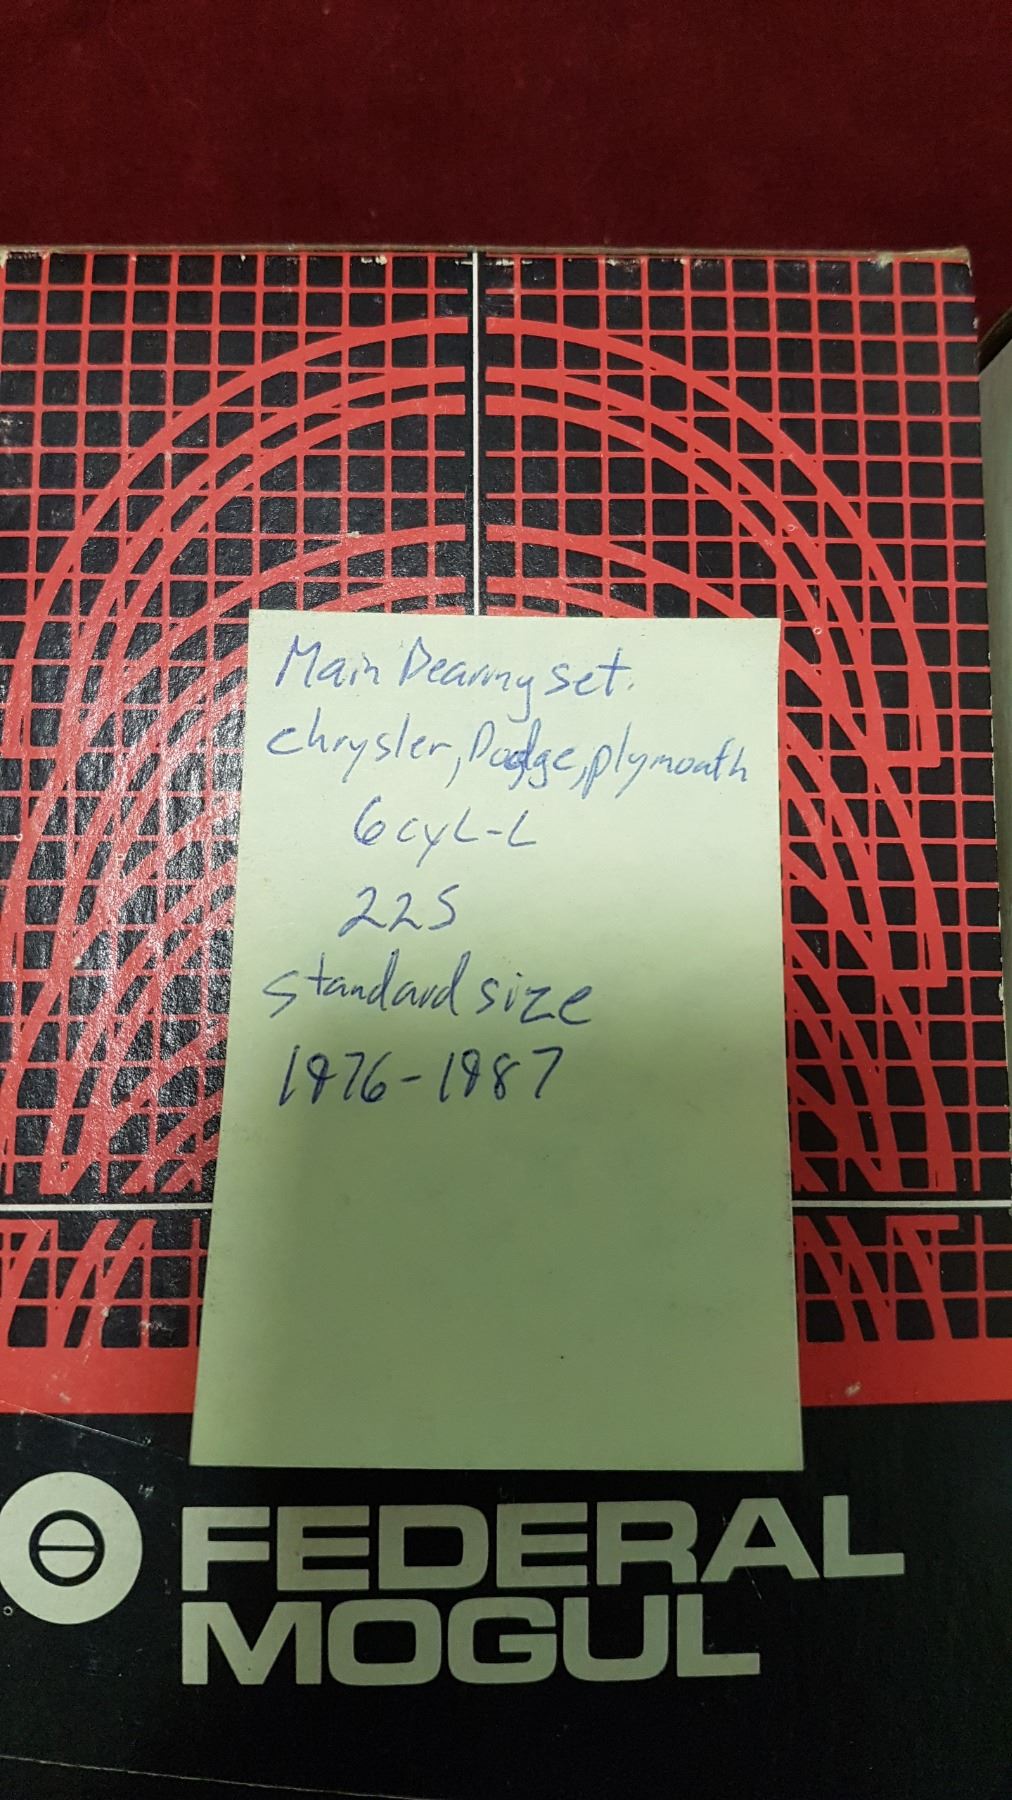 Main Bearing set.
chrysler, Dodge, plymouth
6cyL-L
225
standard size
1976-1987
FEDERAL
MOGUL